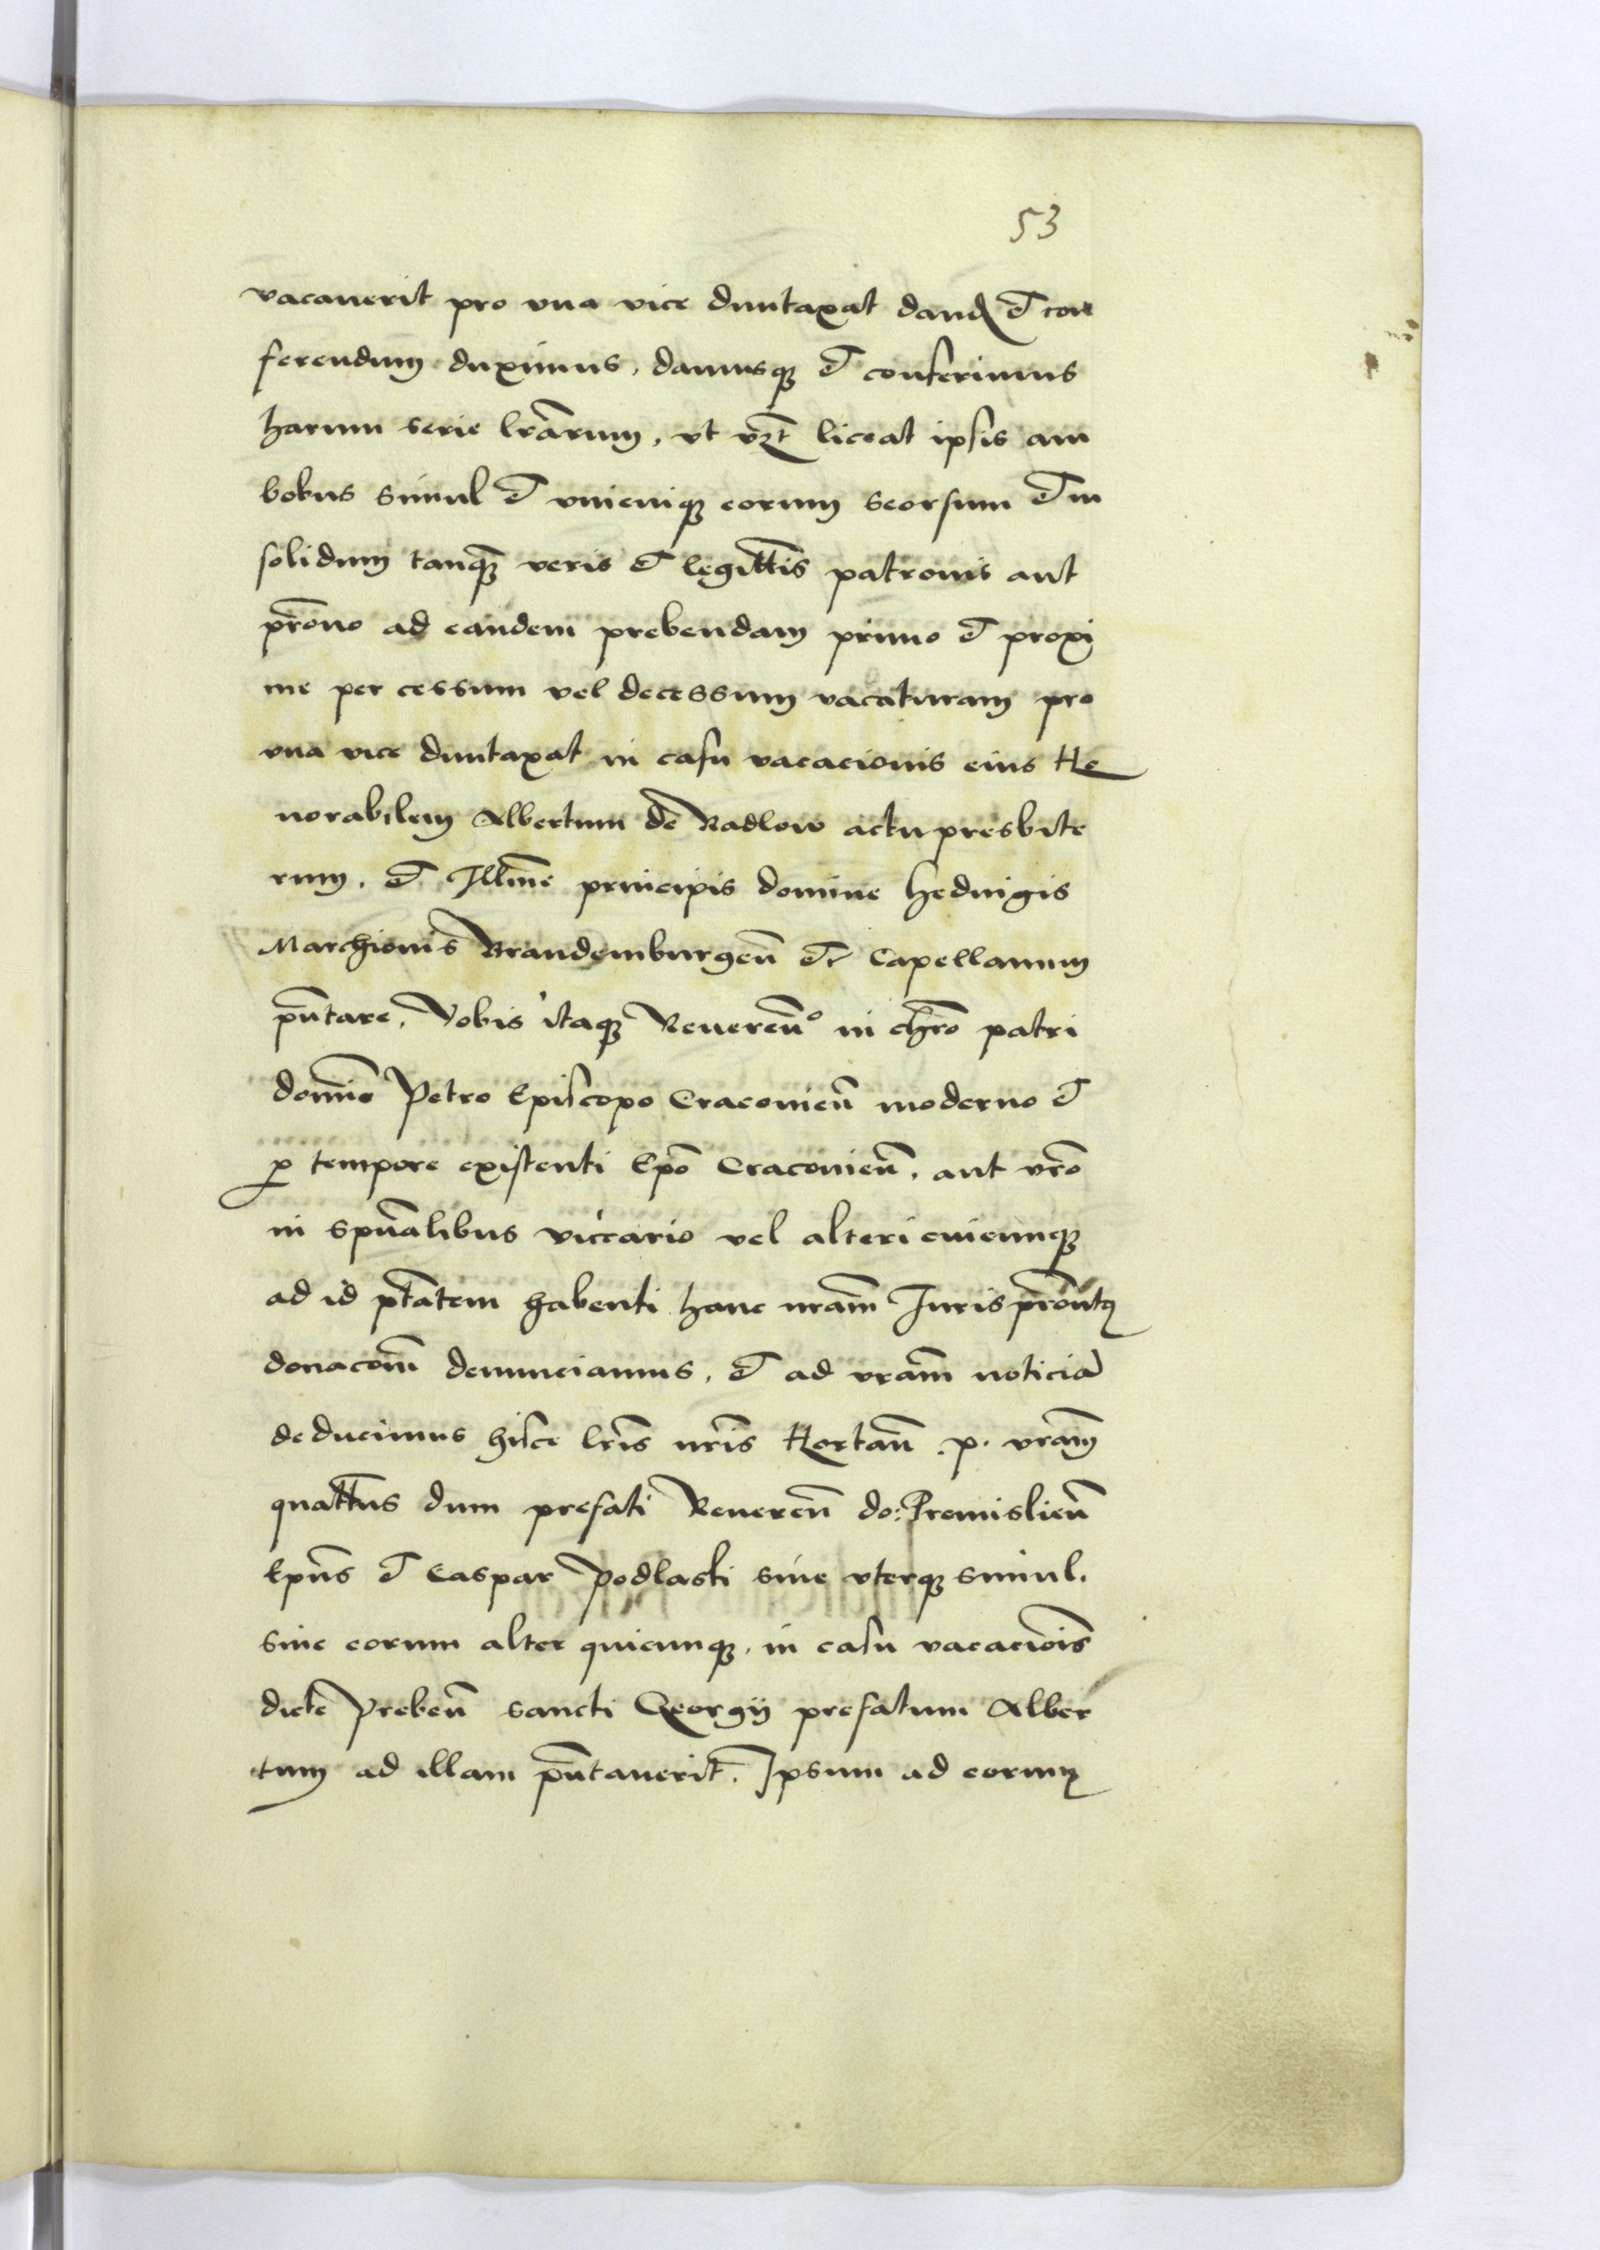 53
vacauerit pro vna vice duntaxat dand et con
ferendum duximus, damusq; et conferimus
harum serie lrarum, vt vzt liceat ipsis am
bobus simul et vnicuiq; eorum seorsum et in
solidum tanq; veris et legittis patronis aut
prono ad eandem prebendam primo et proxi
me per cessum vel decessum vacaturam pro
vna vice duntaxat in casu vacacionis eius Ho
norabilem Albertum de Radlow actu presbite
rum, et Illme principis domine Heduigis
Marchionis Brandemburgen etc Capellanum
pntare, Vobis itaq; Reueren° in chro patri
domino Petro Episcopo Cracouien moderno et
p tempore existenti Epo Cracouien, aut vro
in spualibus viccario vel alteri cuicunq;
ad id ptatem habenti hanc nram Iuris pronty
donacom denunciamus, et ad vram noticia
deducimus hisce lris nris Hortan .p. vram
quattus dum prefati Reueren do: Premislien
Epus et Caspar Podlaski siue vterq; simul,
siue eorum alter quicunq;, in casu vacaciois
dicte Preben sancti Georgij prefatum Alber
tum ad illam pntauerit, Ipsum ad eorum